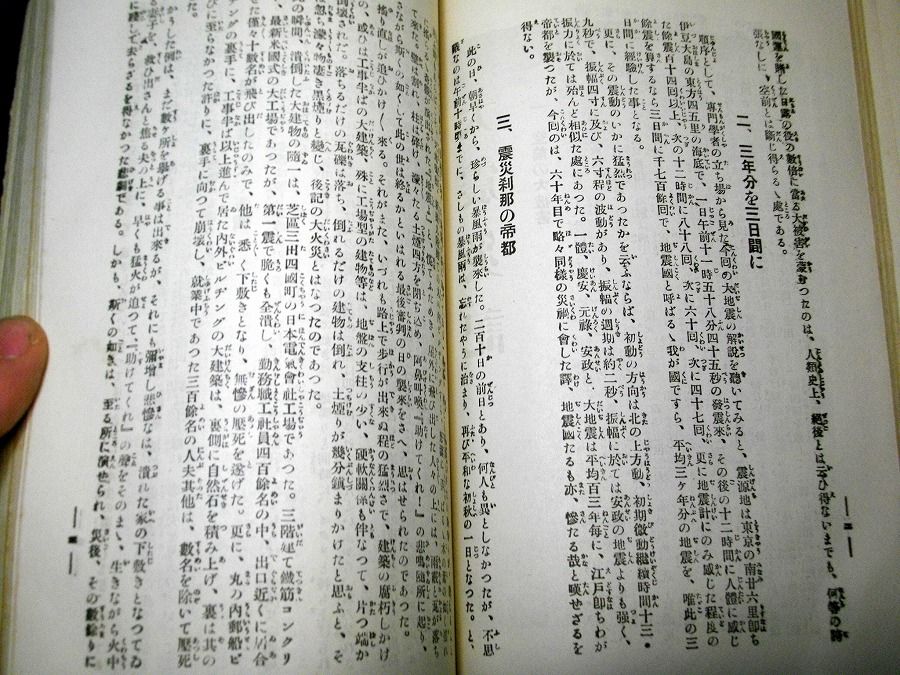 國運を賭した日露の役の數倍に當る大被害を蒙むつたのは、人類史上、絶後とは云ひ得ないまでも、何等の誇
張なしに、空前とは斷じ得らるゝ處である。
二、三年分を三日間に
順序として、專門學者の立ち場から見た今回の大地震の解説を聽いてみると、震源地は東京の南廿六里卽ち
伊豆大島の東方四五里の海底で、一日午前十一時五十八分四十五秒の發震來、その後の十二時間に人體に感じ
餘震百十四回以上、次の十二時間に八十八回、次に六十回、次に四十七回、更に地震計にのみ感じた程度の
餘震を算するなら三日間に千七百餘回で、地震國と呼ばるゝ我が國ですら、平均三ケ年分の地震を、唯此の三
日間に經驗した事となる。
更に、その震動のいかに猛烈であつたかを云ふならば、初動の方向は北の上方動、初期微動繼續時間十三・
九秒で、振幅四寸に及び、六寸程の波動があり、振幅の週期は約二秒、振幅に於ては安政の地震よりも强く、
振力に於ては殆んど相似た處にあつた。一體、慶安、元祿、安政と、大地震は平均百三年每に、江戸卽ちわが
帝都を襲つたが、今回のは、六十年目で略々同樣の災禍に會した譯、地震國たるも亦、慘たる哉と嘆ぜざるを
得ない。
三、震災刹那の帝都
此の日、朝早から、珍らしい暴風雨が襲來した。二百十日の前日とあり、何人も異としなかつたが、不思
議なのは午前十時頃までに、さしもの暴風雨は、忘れたやうに治まり、再び平和な初秋の一日となつた。と、
て來た。壁は剝れ、柱は碎け、濛々たる土煙四方を閉ぢ込め、阿鼻叫喚『助けてくれ』の悲鳴隨所に起り、
さながら斯くの如くして此の世は終るかとはれる最後審判の日の襲來をさへ、思はせられたのであつた。
搖り直しが追つかけ〱來る。それがまた、いづれも路上で歩行が出來ぬ程の猛烈さで、建築の腐朽しかけ
の、或は工事半ばの大建築、殊に工場型の建物等は、地盤の支柱の少い、硬軟關係も伴なつて、片つ端か
倒壞された。落ちるだけの瓦礫は落ち、倒れるだけの建物は倒れ、土煙りが幾分鎭まりかけたと思ふと、そ
忽ち、濛々物凄き黑塊りと變じ、後記の大火災とはなつたのであつた。
の瞬間、潰倒した大建物の隨一は、芝區三田四國町の日本電氣會社工場であつた。三階建て鐵筋コンクリ
、最新米國式の大工場であつたが、第一震で脆くも全潰し、勤務職工社員四百餘名の中、出口近くに居合
せた僅々十數名が飛び出したのみで、他は悉く下敷きとなり、無慘の壓死を遂げた。更に、丸の内郵船ビ
ヂングの裏手に、工事半ば以上進んで居た内外ビルヂングの大建築は、裏側に自然石を積み上げ、裏は其の
びに至らなかつた許りに、裏手に向つて崩壞し、就業中であつた三百餘名の人夫其他は、數名を除いて壓死
かうした例は、まだ數ケ所を擧げる事は出來るが、それにも彌增し悲慘なは、潰れた家の下敷きとなつてゐ
妻を、救ひ出さんと焦る夫の上に、早くも猛火が迫つて『助けてくれ』の聲をそのまゝ、生きながら火中
に殘して去らざるを得なかつた悲劇である。しかも、斯くの如きは、至る所に演ぜられ、災後、その數餘りに